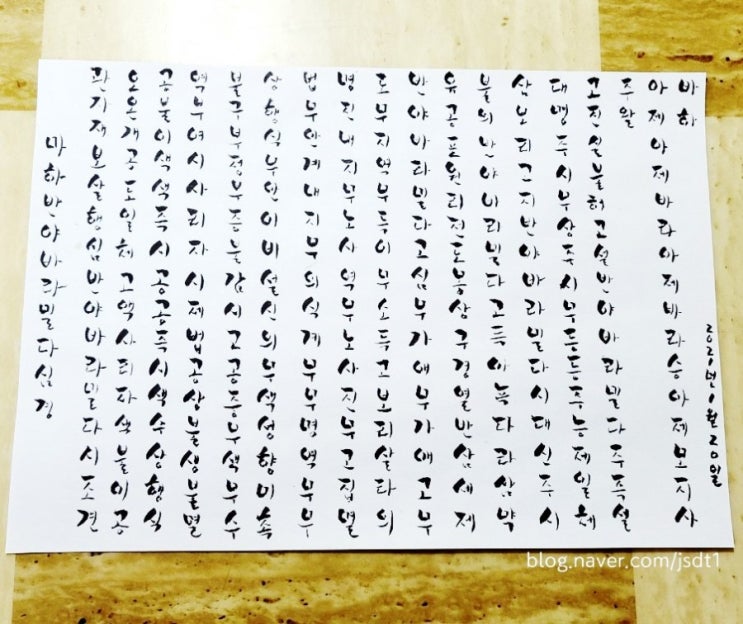 마하반야바라밀다심경
관자재보살행심반야바라밀다시조견
오온개공도일체고액사리자색불이공
공불이색색즉시공공즉시색수상행식
역부여시사리자시제법공상불생불멸
불구부정부증불감시고공중무색무수
상행식무안이비설신의무색성향미촉
법무안계내지무의식계무무명역무무
명진내지무노사역무노사진무고집멸
도무지역무득이무소득고보리살타의
반야바라밀다고심무가애무가애고무
유공포원리전도몽상구경열반삼세제
불의반야바라밀다고득아뇩다라삼약
삼보리고지반야바라밀다시대신주시
대명주시무상주시무등등주능제일체
고진실불허고설반야바라밀다주즉설
주왈
아제아제바라아제바라승아제모지사
바하
2021년 1월 20일
blog.naver.com/jsdt1